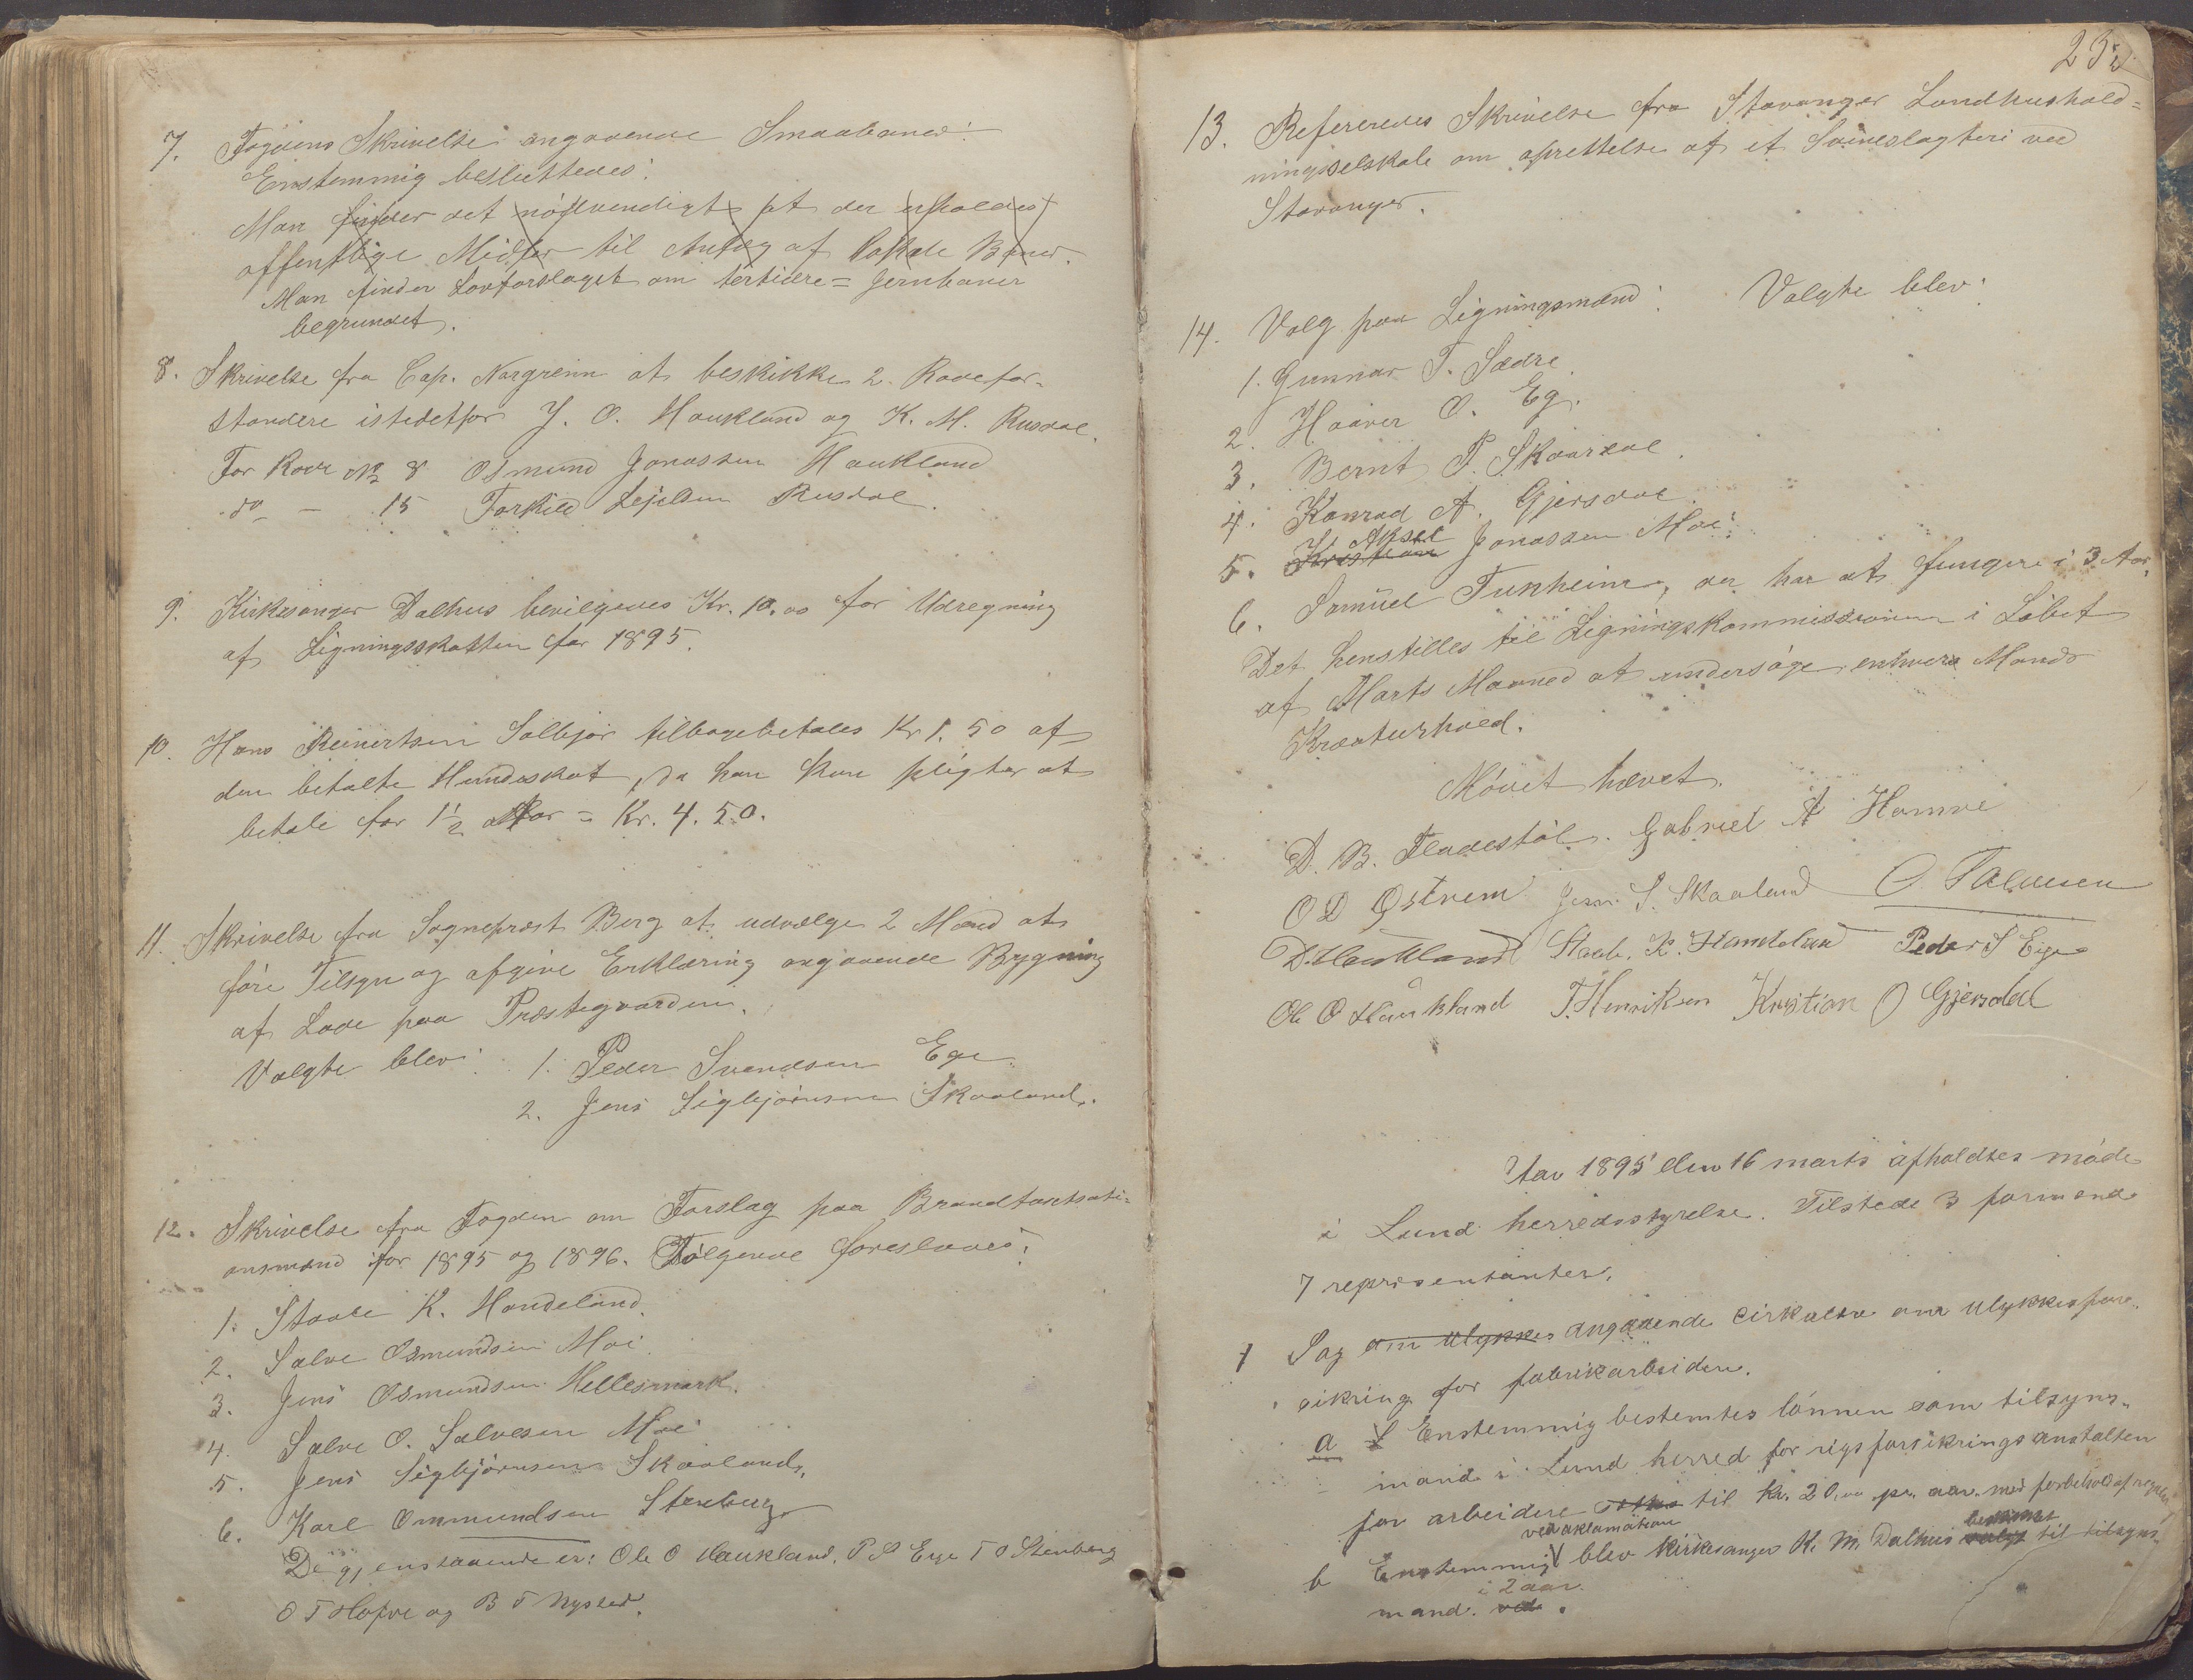 7. Fogdens Skrivelse angaaende Smaabaner:
Enstemmig besluttedes:
Man finder det nødvendigt at der erholdes
offentlige Midler til Anlæg af lokale Baner.
Man finder Lovforslaget om tertiære= Jernbaner
begrundet.
8. Skrivelse fra Cap. Norgrenn at beskikke 2 Rodefor-
standere istedetfor J. O. Haukland og K. M. Rusdal.
For Rode № 8 Osmund Jonassen Haukland
do - 15 Torkild Lejelsen Rusdal.
9. Kirkesanger Dalhus bevilgedes Kr. 10.00 for Udregning
af Ligningsskatten for 1895.
10. Hans Reinertsen Solbjør tilbagebetales Kr 1. 50 af
den betalte Hundeskat, da han kun pligter at
betale for 1½ Aar = Kr. 4.50.
11. Skrivelse fra Sogneprest Berg at udvælge 2 Mænd at
føre Tilsyn og afgive Erklæring angaaende Bygning
af Lade paa Præstegaarden.
Valgte blev: 1. Peder Svendsen Ege
2. Jens Sigbjørnsen Skaaland.
12. Skrivelse fra Fogden om Forslag paa Brandtaxtsati-
onsmænd for 1895 og 1896. Følgende foresloges:
1. Staale K. Handeland.
2. Salve Osmundsen Moi.
3. Jens Osmundsen Hellesmark.
4. Salve O. Salvesen Moi
5. Jens Sigbjørnsen Skaaland.
6. Karl Ommundsen Stenberg
De gjenstaaende er: Ole O Haukland, P S Ege T O Stenberg
O T Hofve og B T Nysted.
232
13. Refereredes Skrivelse fra Stavanger Landhushold=
ningsselskab om oprettelse af et Svineslagteri ved
Stavanger.
14. Valg paa Ligningsmænd: Valgte blev:
1. Gunnar T. Sædre.
2. Haaver O. Eg.
3. Bernt P. Skaardal.
4. Konrad A. Gjersdal.
Aksel
5. Kristian Jonassen Moi.
6. Samuel Tunheim, der har at fungere i 3 Aar.
Det henstilles til Ligningskommissionen i Løbet
af Marts Maaned at undersøge enhvers Mands
Kreaturhold.
Mødet hævet.
D. B. Fladestøl. Gabriel A Hamre
O D Østrem Jens S. Skaaland O Salvesen
D. Haukland Staale K. Handeland Peder S Ege
Ole O Haukland T. Henriksen Kristian O Gjersdal
Aar 1895 den 16 marts afholdtes møde
i Lund herredsstyrelse. Tilstede 3 formænd
7 representanter.
1 Sag om ulykkes angaaende cirkulære om ulykkesfor-
sikring for fabrikarbeidere.
a Enstemmig bestemtes lønnen som tilsyns-
mand i Lund herred for rigsforsikringsanstalten
for arbeidere til kr. 20,00 pr. aar. med forbehold af
ved aklamation
beskikket
b Enstemmig blev kirkesanger K. M. Dalhus valgt til tilsyns-
i 2 aar.
mand. ved.